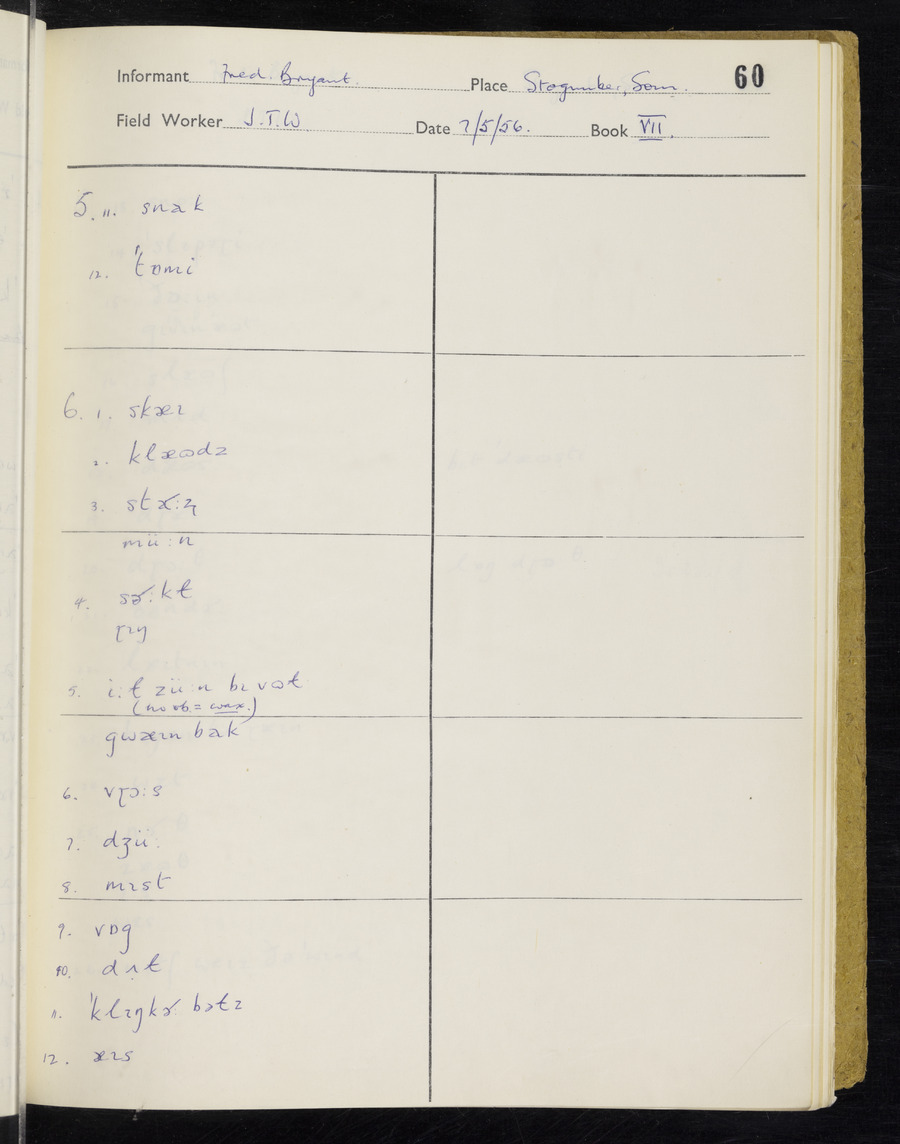 Informant Fred. Bryant. Place Stogumber, Som. 60
Field Worker J.T.W Date 7/5/56. Book VII.
5. 11. snak
12. ˈtɒmi
6. 1. skæɪ
2. klæɷdz
3. stɚ:z̩
mü:n
4. sɚ:kt
ɽɪŋ
5. i:t zü:n bɪ vɷt
(no vb. = wax.)
gwæɪn bak
6. vɽɔ:s
7. dʒü:
8. mɪst
9. vɒg
10. dɹʌt
11. ˈklɪŋkɚ bɛtz
12. æɪs